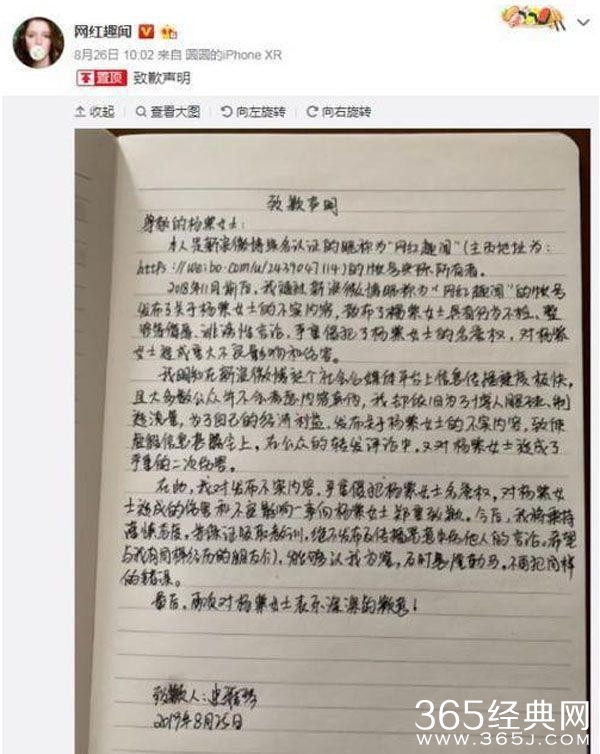 网红趣闻
8月26日 10:02 来自 圆圆的iPhone XR
置顶 致歉声明
收起 查看大图 向左旋转 向右旋转
致歉声明
尊敬的杨紫女士:
本人是新浪微博实名认证的昵称为“网红趣闻”(主页地址为:
https://weibo.com/u/2439047114)的账号实际所有者。
2018年11月前后,我通过新浪微博昵称为“网红趣闻”的账号
发布了关于杨紫女士的不实内容,散布了杨紫女士具有行为不检、整
诽谤性言论,严重侵犯了杨紫女士的名誉权,对杨紫
女士造成重大不良影响和伤害。
我明知在新浪微博这个社会公媒体平台上信息传播速度极快,
且大多数公众并不会考虑内容真伪,我却依旧为了博人眼球、制
造流量,为了自己的经济利益,发布关于杨紫女士的不实内容,致使
虚假信息甚嚣尘上,在公众的转发评论中,又对杨紫女士造成了
严重的二次伤害。
在此,我对发布不实内容,严重侵犯杨紫女士名誉权,对杨紫女
士造成的伤害和不良影响一事向杨紫女士郑重致歉。今后,我将秉持
谨慎态度,并保证吸取教训,绝不发布和传播恶意中伤他人的言论。希望
与我有同样经历的朋友们,能够以我为鉴,及时悬崖勒马,不再犯同样
的错误。
最后,再次对杨紫女士表示深深的歉意!
致歉人:
2019年8月25日
365经典网
www.365j.com